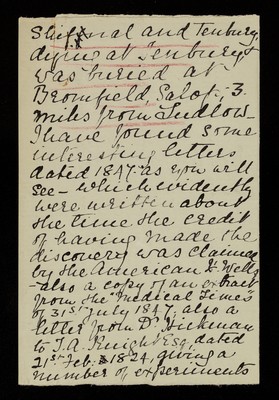 Shiffnal and Tenbury,
dying at Tenbury &
was buried at
Bromfield Salop; 3
miles from Ludlow -
I have found some
interesting letters
dated 1847 as you will
see - which evidently
were written about
the time the credit
of having made the
discovery was claimed
by the American H. Wells
- also a copy of an extract
from the "Medical Times"
of 31st July 1847, also a
letter from Dr Hickman
to T. A. Knight Esq, dated
21st Feb: 1824, giving a
number of experiments